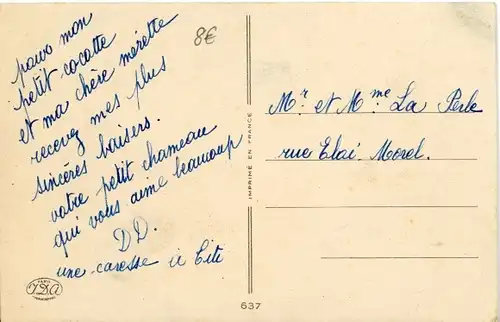 pour mon
petit cocotte
et ma chère mérette
recevez mes plus
sincères baisers.
votre petit chameau
qui vous aime beaucoup
D D.
une caresse à Titi
8€
IMPRIMÉ EN FRANCE
Mr et Mme La Perle
rue Elai Morel.
PARIS
637